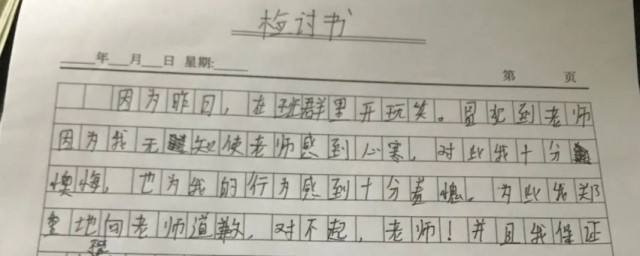 检讨书
年 月 日 星期:
第 页
因为昨日,在班群里开玩笑。冒犯到老师
因为我无知使老师感到心寒,对此我十分
懊悔,也为我的行为感到十分羞愧。为此我郑
重地向老师道歉,对不起,老师!并且我保证